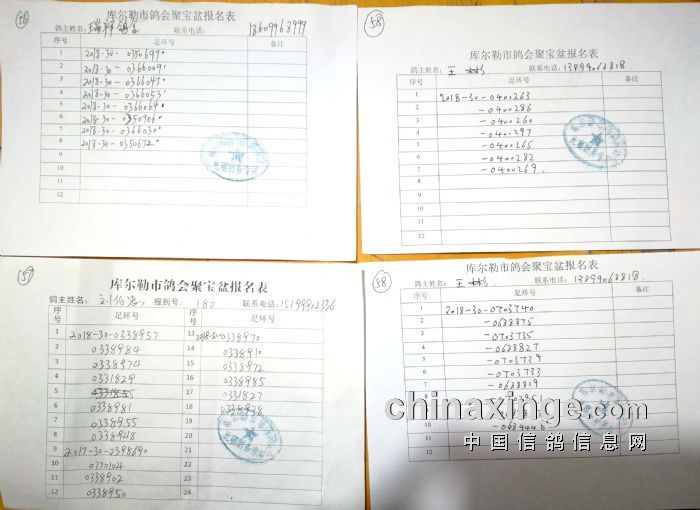 56
库尔勒市鸽会聚宝盆报名表
鸽主姓名: 联系电话: 13609968977
序号 足环号 备注
1 2018-30-0350697
2 2018-30-0366009
3 2018-30-0366047
4 2018-30-0366053
5 2018-30-0366064
6 2018-30-0350906
7 2018-30-0366030
8 2018-30-0350672
9
10
11
12
58
库尔勒市鸽会聚宝盆报名表
鸽主姓名: 王彬 联系电话: 13899068818
序号 足环号 备注
1 2018-30-0400263
2 -0400286
3 -0400260
4 -0400297
5 -0400265
6 -0400282
7 -0400269
8
9
10
11
12
57
库尔勒市鸽会聚宝盆报名表
鸽主姓名: 报到号: 180 联系电话: 15199902336
序号 足环号 序号 足环号
1 2018-30-0338957 13 2018-30-0338970
2 0338984 14 0338910
3 0338974 15 0338972
4 0331829 16 0338985
5 17 0331827
6 0338981 18 0338938
7 0338955 19
8 0338948 20
9 2017-30-0398690 21
10 0770104 22
11 0338902 23
12 0338950 24
58
库尔勒市鸽会聚宝盆报名表
鸽主姓名: 王彬 联系电话: 13899068818
序号 足环号 备注
1 2018-30-0703740
2 -0688875
3 -0703735
4 -0688827
5 -0703739
6 -0703733
7 -0688819
8
9
10
11
12
chinaxinge.com
中国信鸽信息网